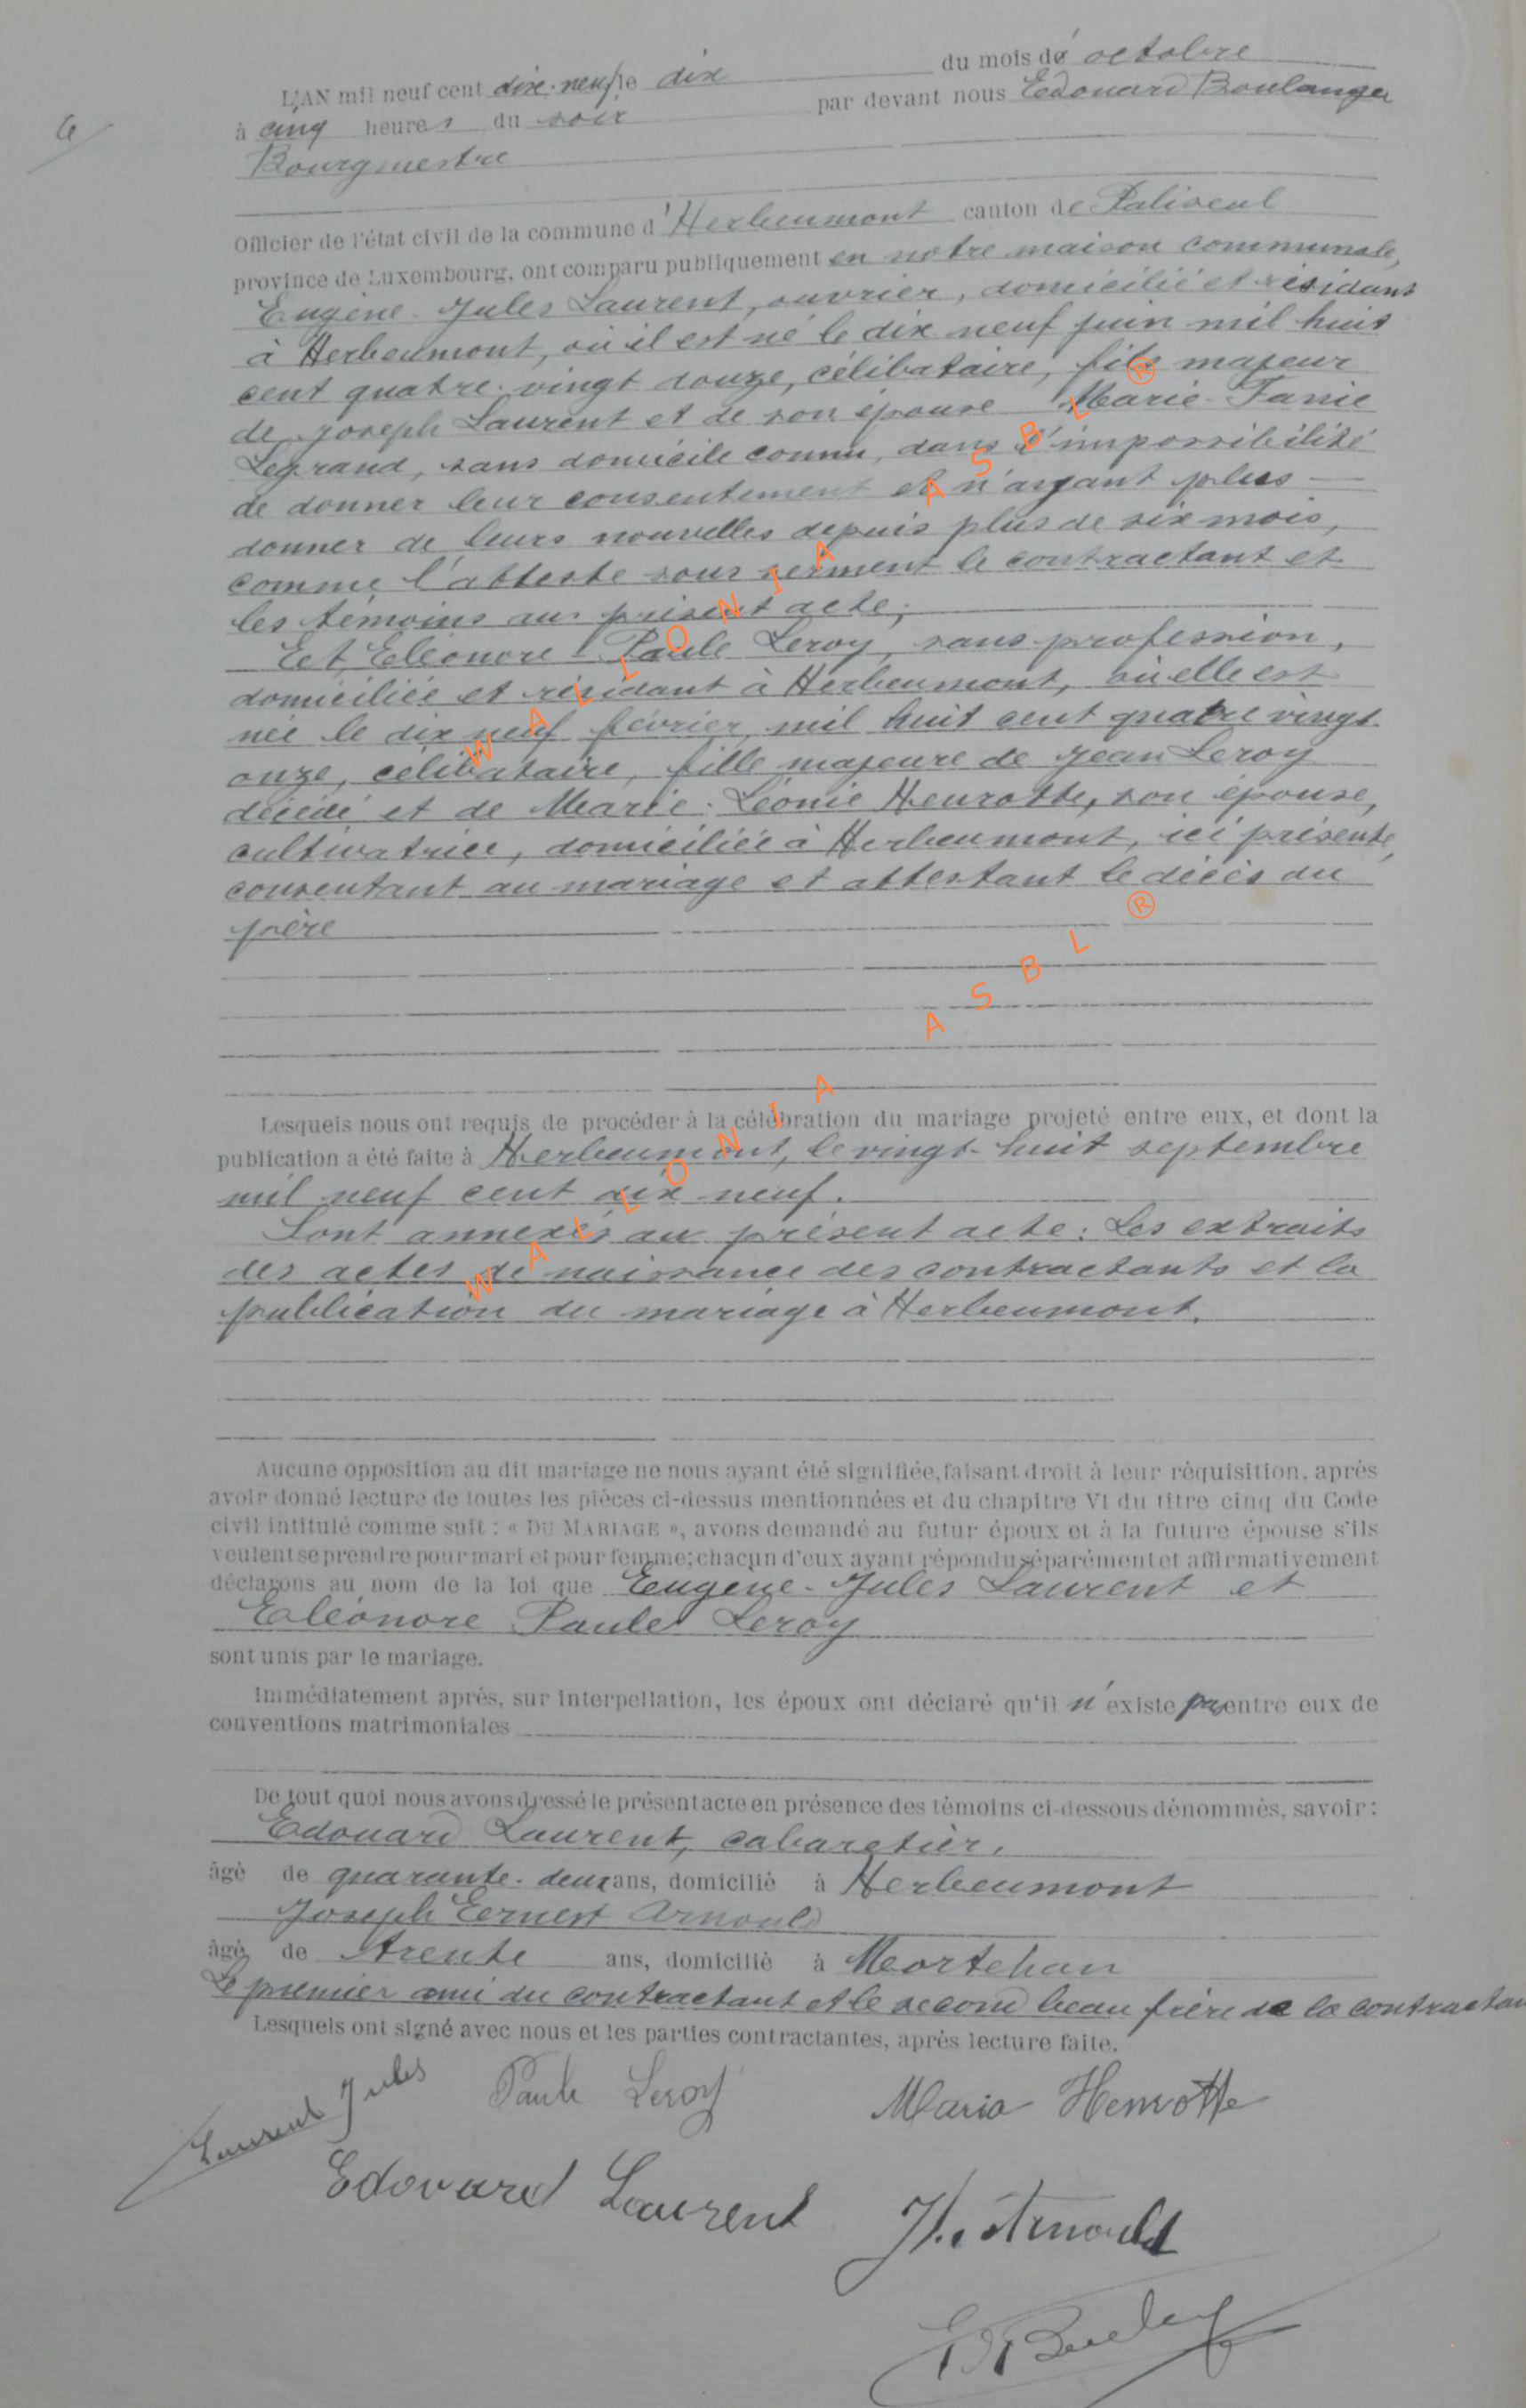 6
L'AN mil neuf cent dix-neuf le dix du mois de octobre
à cinq heures du soir par devant nous Edouard Boulanger
Bourgmestre
Officier de l'état civil de la commune d'Herbeumont canton de Paliseul
province de Luxembourg, ont comparu publiquement en notre maison communale,
Eugène-Jules Laurent, ouvrier, domicilié et résidant
à Herbeumont, où il est né le dix neuf juin mil huit
cent quatre-vingt douze, célibataire, fils majeur
de Joseph Laurent et de son épouse Marie-Fanie
Legrand, sans domicile connu, dans l'impossibilité
de donner leur consentement et n'ayant plus
donner de leurs nouvelles depuis plus de six mois,
comme l'atteste sous serment le contractant et
les témoins au présent acte;
Et Eléonore Paule Leroy, sans profession,
domiciliée et résidant à Herbeumont, où elle est
née le dix neuf février mil huit cent quatre vingt
onze, célibataire, fille majeure de Jean Leroy
décédé et de Marie-Léonie Henrotte, son épouse,
cultivatrice, domiciliée à Herbeumont, ici présente,
consentant au mariage et attestant le décès du
père
WALLONIA ASBL ®
WALLONIA ASBL ®
Lesquels nous ont requis de procéder à la célébration du mariage projeté entre eux, et dont la
publication a été faite à Herbeumont, le vingt-huit septembre
mil neuf cent dix neuf.
Sont annexés au présent acte: Les extraits
des actes de naissance des contractants et la
publication du mariage à Herbeumont.
Aucune opposition au dit mariage ne nous ayant été signifiée, faisant droit à leur réquisition, après
avoir donné lecture de toutes les pièces ci-dessus mentionnées et du chapitre VI du titre cinq du Code
civil intitulé comme suit : « DU MARIAGE », avons demandé au futur époux et à la future épouse s'ils
veulent se prendre pour mari et pour femme; chacun d'eux ayant répondu séparément et affirmativement
déclarons au nom de la loi que Eugène-Jules Laurent et
Eléonore Paule Leroy
sont unis par le mariage.
Immédiatement après, sur interpellation, les époux ont déclaré qu'il n'existe pas entre eux de
conventions matrimoniales
De tout quoi nous avons dressé le présent acte en présence des témoins ci-dessous dénommés, savoir:
Edouard Laurent, cabaretier,
âgé de quarante-deux ans, domicilié à Herbeumont
Joseph Eernest Arnould
âgé de trente ans, domicilié à Mortehan
Le premier ami du contractant et le second beau frère de la contractan
Lesquels ont signé avec nous et les parties contractantes, après lecture faite.
Laurent Jules Paule Leroy Maria Henrotte
Edouard Laurent J. Arnould